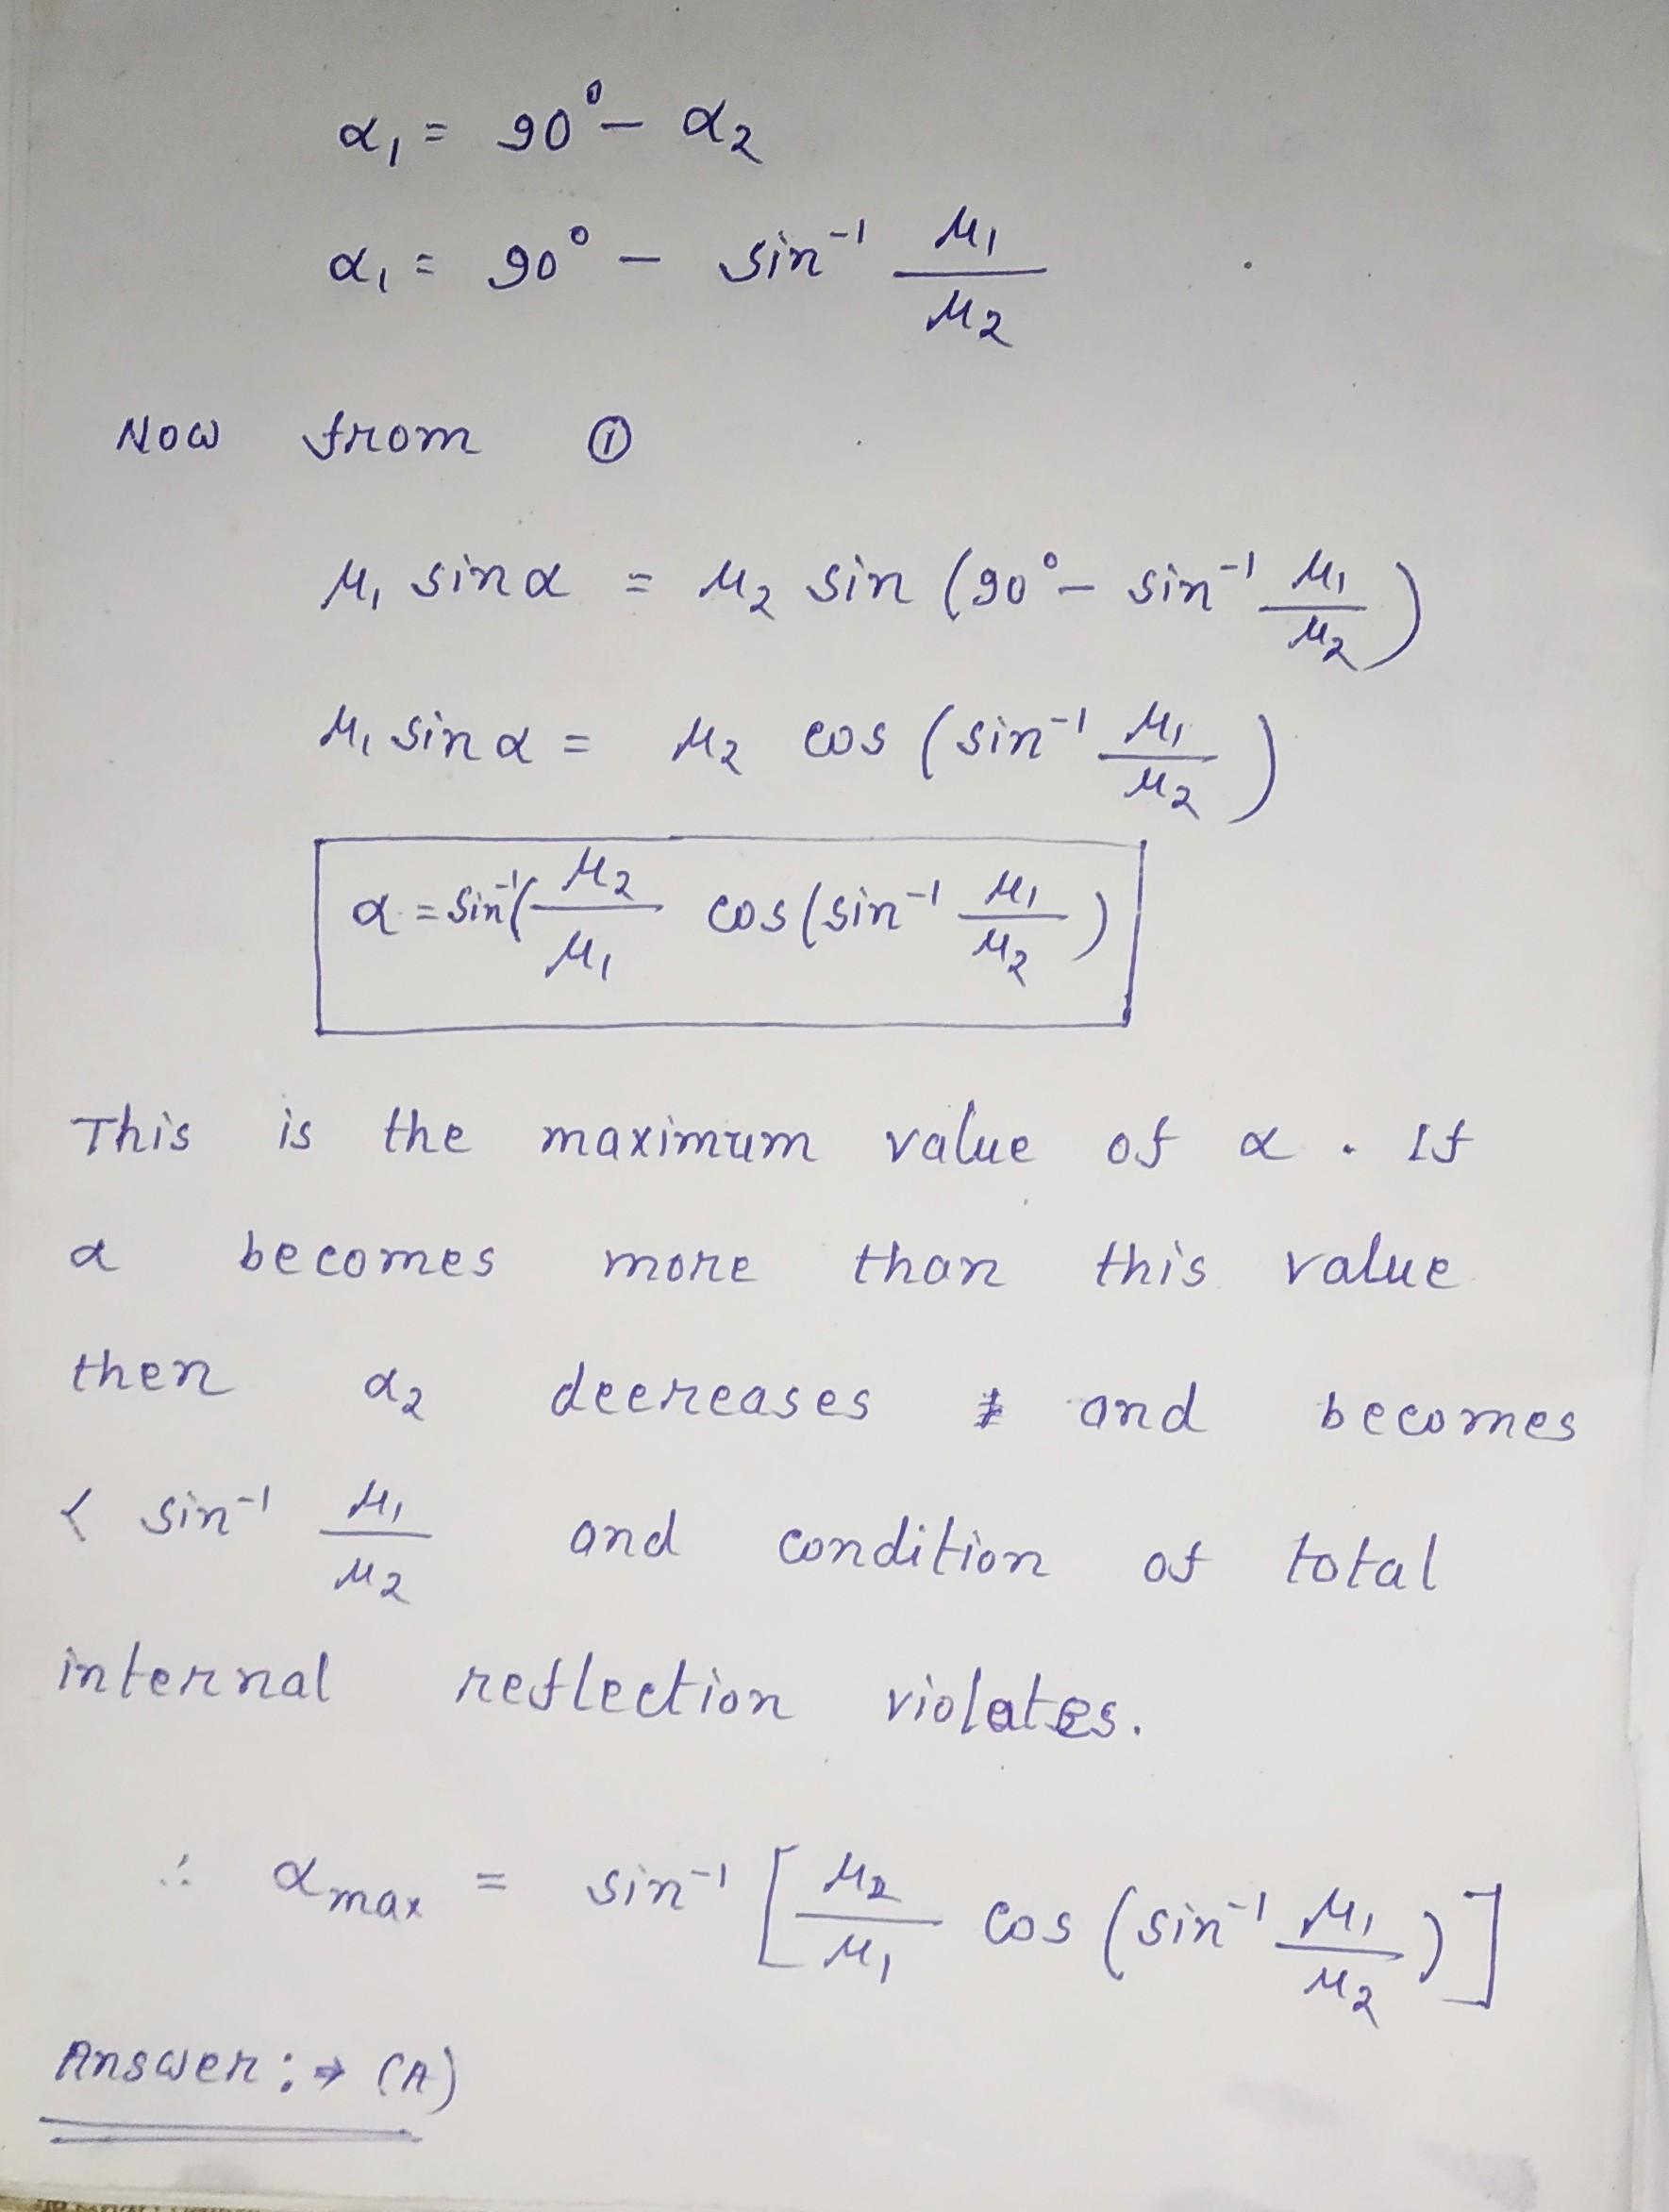 α₁ = 90° − α₂
α₁ = 90° − sin⁻¹ μ₁/μ₂
Now from ①
μ₁ sinα = μ₂ sin (90° − sin⁻¹ μ₁/μ₂)
μ₁ sinα = μ₂ cos (sin⁻¹ μ₁/μ₂)
α = sin⁻¹( μ₂/μ₁ cos(sin⁻¹ μ₁/μ₂)
This is the maximum value of α. If
α becomes more than this value
then α₂ decreases and becomes
< sin⁻¹ μ₁/μ₂ and condition of total
internal reflection violates.
∴ αmax = sin⁻¹ [μ₂/μ₁ cos (sin⁻¹ μ₁/μ₂)]
Answer :→ (A)